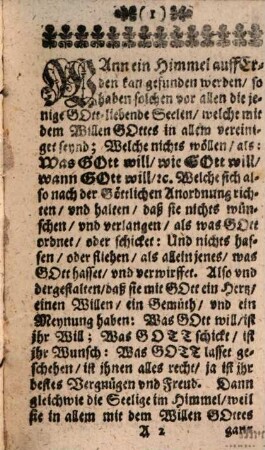 (1)
WAnn ein Himmel auff Er-
den kan gefunden werden/ so
haben solchen vor allen die je-
nige GOtt-liebende Seelen/ welche mit
dem Willen GOttes in allem vereini-
get seynd; Welche nichts wöllen/ als:
Was GOtt will/ wie GOtt will/
wann GOtt will/ ꝛc. Welche sich al-
so nach der Göttlichen Anordnung rich-
ten/ vnd halten/ daß sie nichts wün-
schen/ vnd verlangen/ als was GOtt
ordnet/ oder schicket: Und nichts has-
sen/ oder fliehen/ als allein jenes/ was
GOtt hasset/ vnd verwirffet. Also vnd
dergestalten/ daß sie mit GOtt ein Hertz/
einen Willen/ ein Gemüth/ vnd ein
Meynung haben: Was GOtt will/ ist
jhr Will; Was GOTT schickt/ ist
jhr Wunsch: Was GOTT lasset ge-
schehen/ ist jhnen alles recht/ ja ist jhr
bestes Vergnügen vnd Freud. Dann
gleichwie die Seelige im Himmel/ weil
sie in allem mit dem Willen GOttes
A 2 gantz